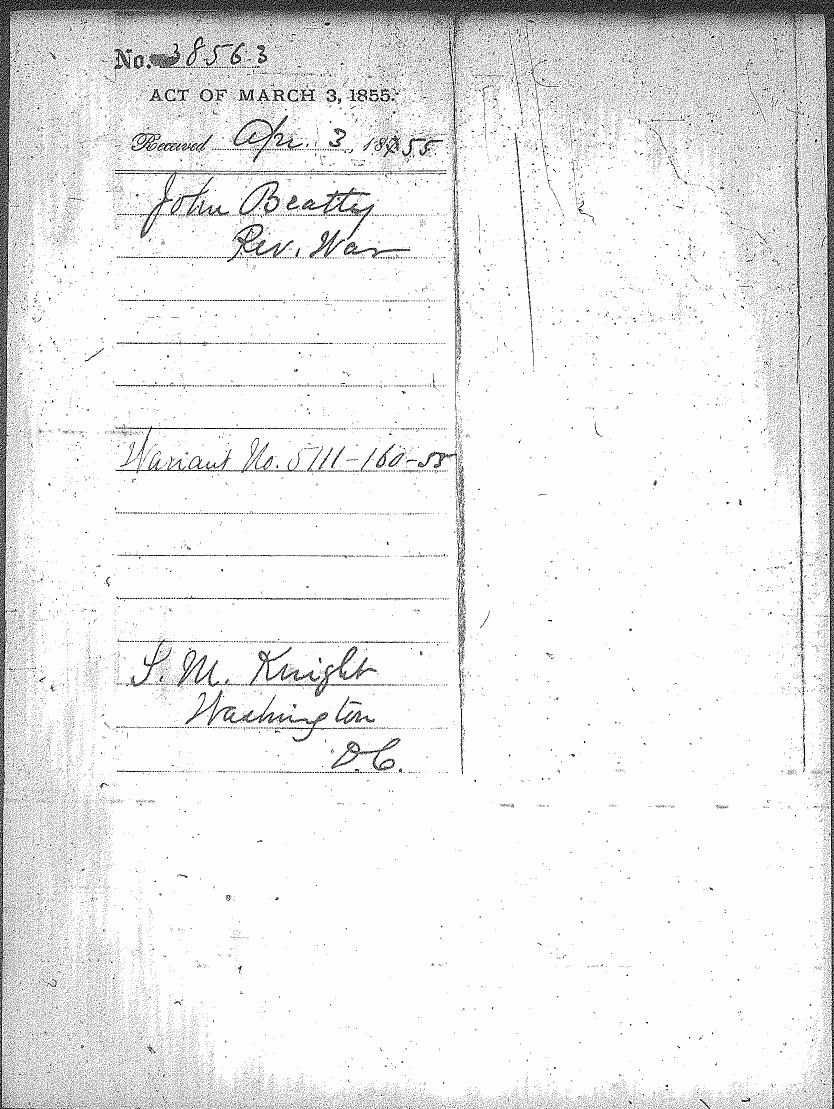 No. 38563
ACT OF MARCH 3, 1855.
Received Apr. 3, 1855
John Beatty
Rev. War
Warrant No. 5111-160-55
S. M. Knight
Washington
D.C.